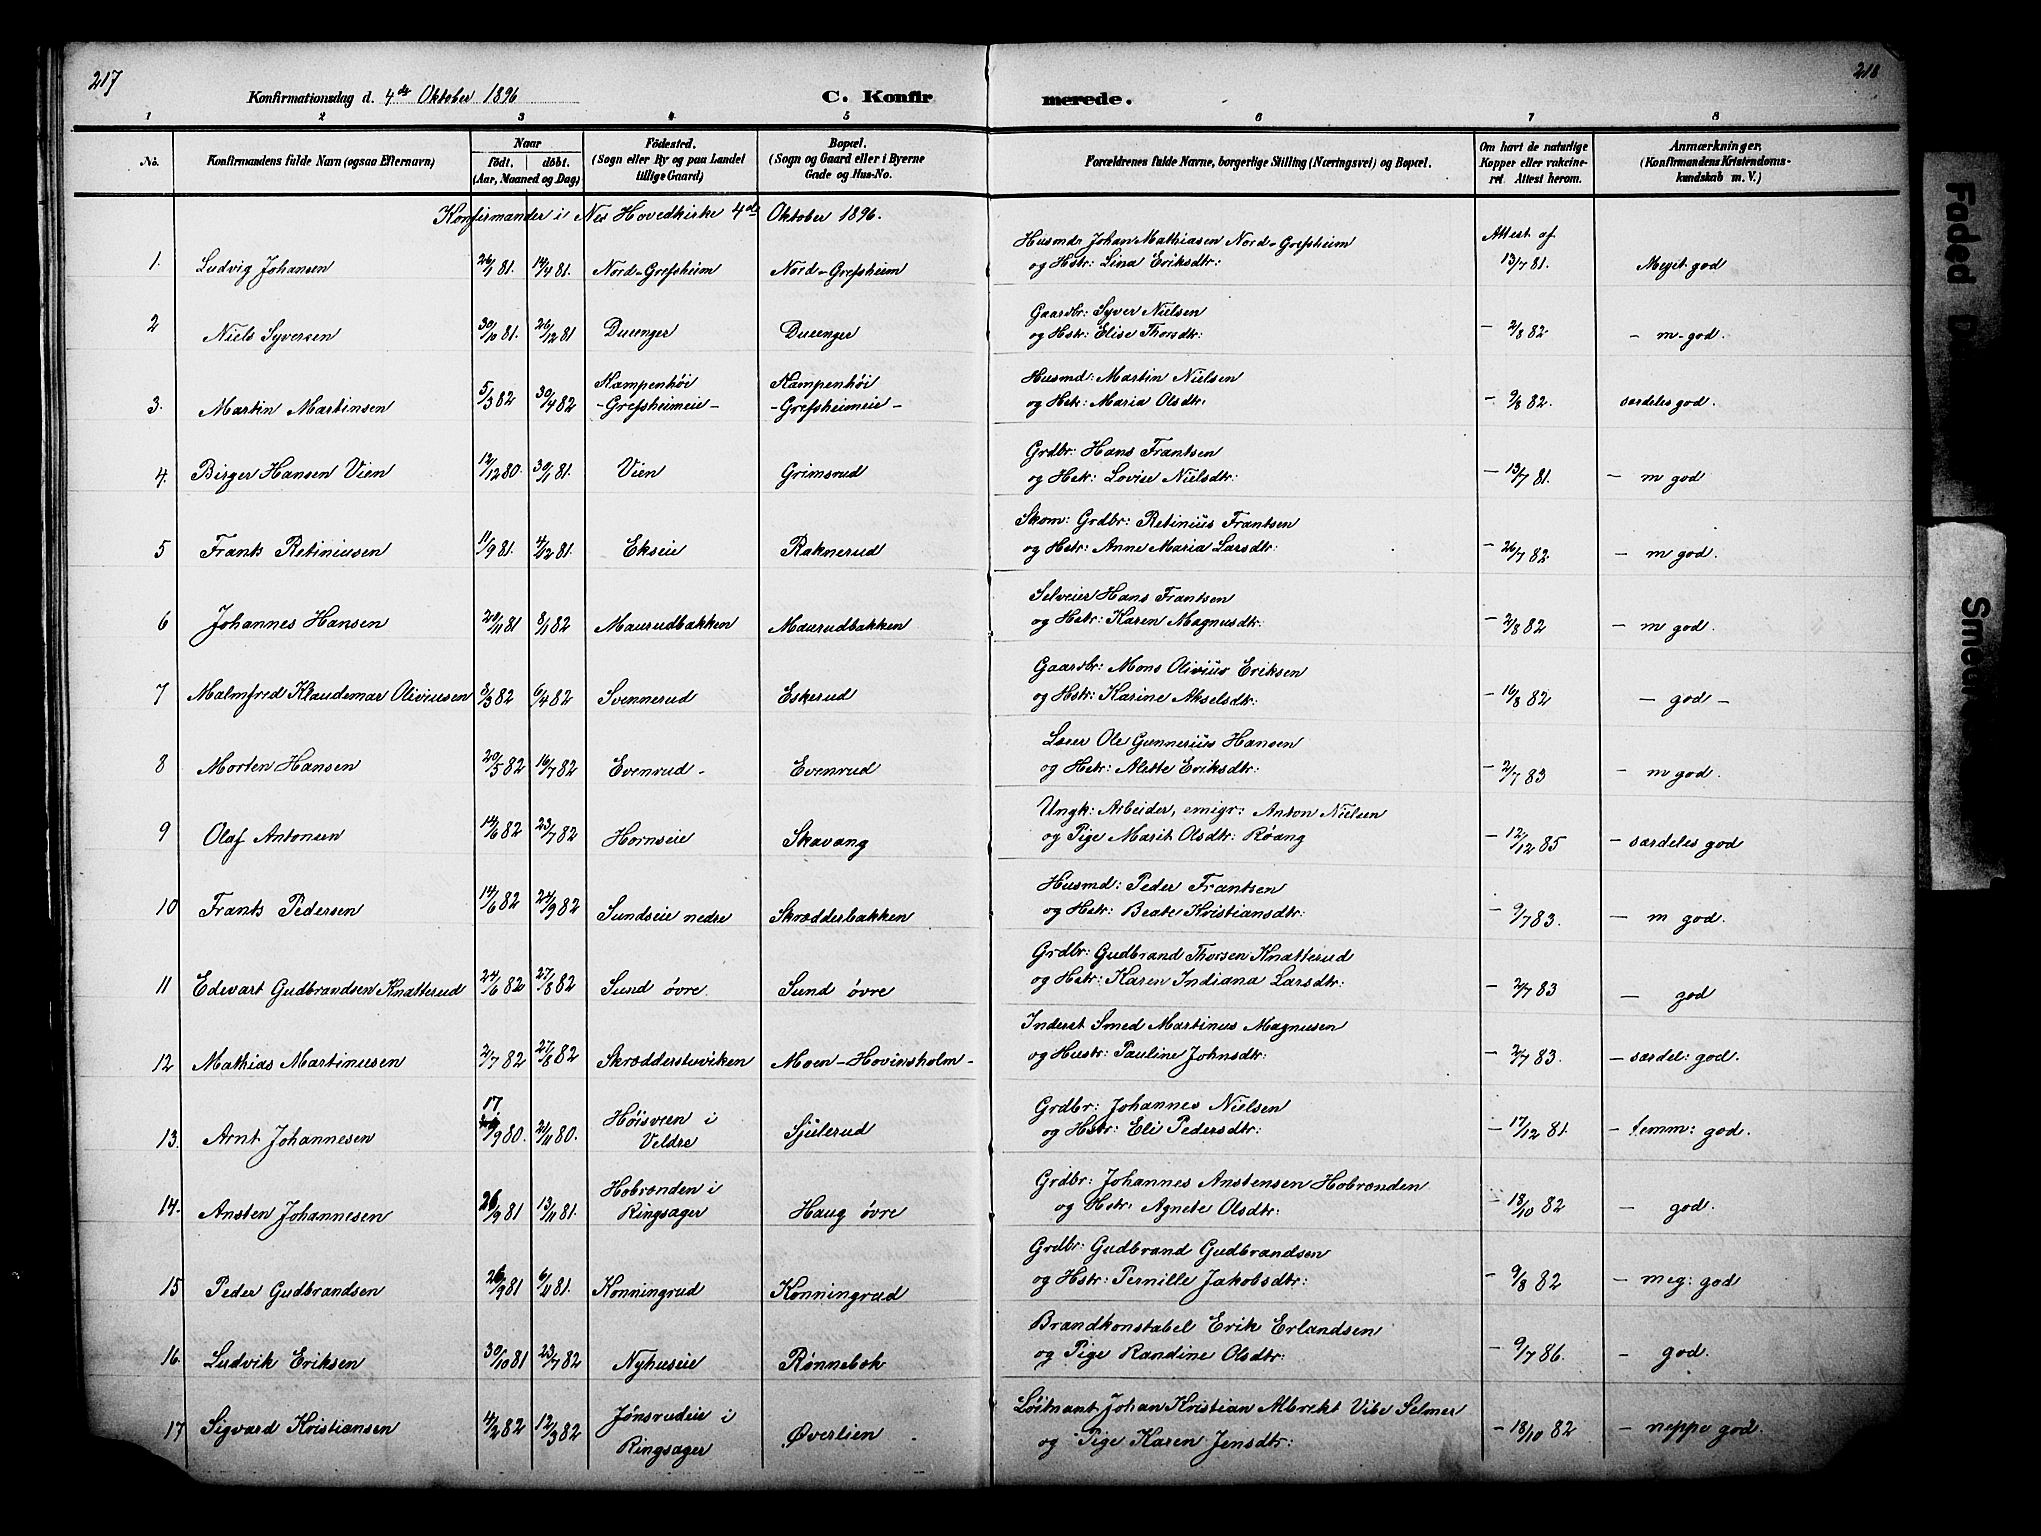 217
218
Konfirmationsdag d. 4de Oktober 1896
C. Konfir merede.
1 2 3 4 5 6 7 8
No. Konfirmandens fulde Navn (ogsaa Efternavn) Naar født, døbt. (Aar, Maaned og Dag) Fødested. (Sogn eller By og paa Landet tillige Gaard) Bopæl. (Sogn og Gaard eller i Byerne Gade og Hus-No. Forældrenes fulde Navne, borgerlige Stilling (Næringsvei) og Bopæl. Om havt de naturlige Kopper eller vakcineret. Attest herom. Anmærkninger. (Konfirmandens Kristendomskundskab m. V.)
Konfirmander i Nes Hovedkirke 4de Oktober 1896.
1. Ludvig Johansen 26/1 81. 14/4 81. Nord-Grefsheim Nord-Grefsheim Husmd: Johan Mathiasen Nord-Grefsheim og Hstr: Lina Eriksdtr: Attest af 13/7 81. Meget god
2 Niels Syversen 30/10 81. 26/12 81 Duenger Duenger Gaardbr: Syver Nielsen og Hstr: Elise Thorsdtr: - 2/8 82 - m-god.
3. Martin Martinsen 5/3 82 30/4 82 Kampenhøi -Grefsheimeie- Kampenhøi -Grefsheimeie- Husmd: Martin Nielsen og Hstr: Maria Olsdtr: - 9/8 82. særdeles god.
4. Birger Hansen Vien 12/12 80. 30/1 81. Vien Grimsrud Grdbr: Hans Frantsen og Hstr: Lovise Nielsdtr: - 13/7 81. - m god
5 Frants Retiniusen 11/9 81. 4/12 81. Ekseie Raknerud Skom: Grdbr: Retinius Frantsen og Hstr: Anne Maria Larsdtr: - 26/7 82. - m god.
6 Johannes Hansen 20/11 81 8/1 82 Maurudbakken Maurudbakken Selveier Hans Frantsen og Hstr: Karen Magnusdtr: - 2/8 82 - m god.
7 Malmfred Klaudemar Oliviusen 8/3 82 6/4 82 Svennerud Eskerud Gaardbr: Mons Olivius Eriksen og Hstr: Karine Akselsdtr: - 16/8 82 - god -
8 Morten Hansen 20/5 82 16/7 82 Evenrud - Evenrud Lærer Ole Gunnerius Hansen og Hstr: Alette Eriksdtr: - 2/7 83 - m god.
9 Olaf Antonsen 14/6 82 23/7 82 Hornseie Skavang Ungk: Arbeider, emigr: Anton Nielsen og Pige Marit Olsdtr: Røang - 12/12 85 - særdeles god
10 Frants Pedersen 14/6 82 24/9 82 Sundseie nedre Skrædderbakken Husmd: Peder Frantsen og Hstr: Beate Kristiansdtr: - 9/7 83. - m god.
11 Edevart Gudbrandsen Knatterud 24/6 82 27/8 82 Sund øvre. Sund øvre Grdbr: Gudbrand Thorsen Knatterud og Hstr: Karen Indiana Larsdtr: - 2/7 83 - god
12 Mathias Martinusen 2/7 82 27/8 82 Skrædderstuviken Moen-Hovinsholm- Inderst Smed Martinus Magnusen og Hustr: Pauline Johnsdtr: - 2/7 83. - særdel: god.
13. Arnt Johannesen 17/9 80. 21/11 80. Høisveen i Veldre Sjulerud Grdbr: Johannes Nielsen og Hstr: Eli Pedersdtr: - 17/12 81. - temm: god.
14. Ansten Johannesen 26/9 81 13/11 81. Hobrænden i Ringsager Haug øvre Grdbr: Johannes Anstensen Hobrænden og Hstr: Agnete Olsdtr: - 18/10 82 - god.
15 Peder Gudbrandsen 26/9 81 6/11 81. Konningrud Konningrud Grdbr: Gudbrand Gudbrandsen og Hstr: Pernille Jakobsdtr: - 9/8 82 - meg: god
16. Ludvik Eriksen 30/10 81 23/7 82 Nyhuseie Rønnebek Brandkonstabel Erik Erlandsen og Pige Randine Olsdtr: - 9/7 86. - god.
17 Sigvard Kristiansen 4/2 82 12/3 82 Jønsrudeie i Ringsager Øverlien Løitnant Johan Kristian Albrekt Vibe Selmer og Pige Karen Jensdtr: - 18/10 82 - neppe god.
Faded